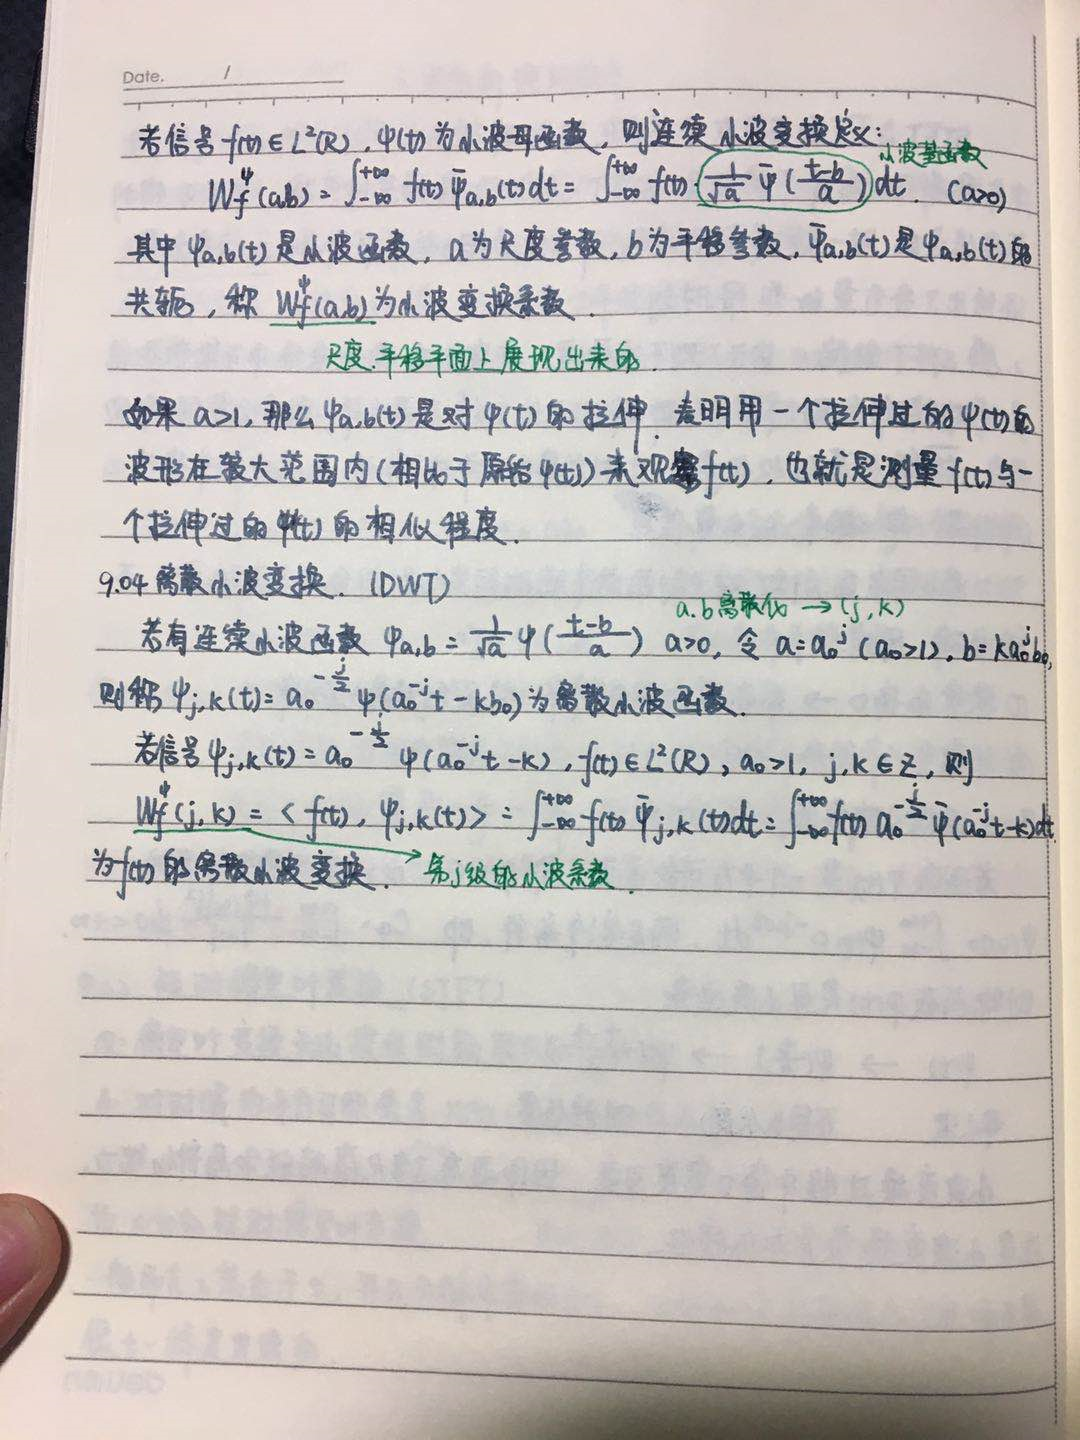 Date. /
若信号 f(t)∈L²(R), ψ(t)为小波母函数, 则连续小波变换定义:
小波基函数
W_f^ψ(a,b) = ∫_{-∞}^{+∞} f(t) ψ̄_{a,b}(t)dt = ∫_{-∞}^{+∞} f(t) 1/√a ψ̄((t-b)/a) dt. (a>0)
其中 ψ_{a,b}(t)是小波函数, a为尺度参数, b为平移参数, ψ̄_{a,b}(t)是ψ_{a,b}(t)的
共轭, 称 W_f^ψ(a,b)为小波变换系数.
尺度.平移平面上展现出来的.
如果 a>1, 那么 ψ_{a,b}(t)是对 ψ(t)的拉伸. 表明用一个拉伸过的ψ(t)的
波形在较大范围内(相比于原始ψ(t))来观察f(t), 也就是测量 f(t)与一
个拉伸过的ψ(t)的相似程度.
9.04 离散小波变换. (DWT)
a.b离散化 → (j,k)
若有连续小波函数 ψ_{a,b} = 1/√a ψ((t-b)/a) a>0, 令 a=a₀^j (a₀>1), b=ka₀^j b₀,
则称 ψ_{j,k}(t)= a₀^{-j/2} ψ(a₀^{-j}t-kb₀)为离散小波函数.
若信号 ψ_{j,k}(t)=a₀^{-j/2} ψ(a₀^{-j}t-k), f(t)∈L²(R), a₀>1, j,k∈Z, 则
W_f^ψ(j,k) = <f(t), ψ_{j,k}(t)> = ∫_{-∞}^{+∞} f(t) ψ̄_{j,k}(t)dt = ∫_{-∞}^{+∞} f(t) a₀^{-j/2} ψ̄(a₀^{-j}t-k)dt
为f(t)的离散小波变换. → 第j级的小波系数.